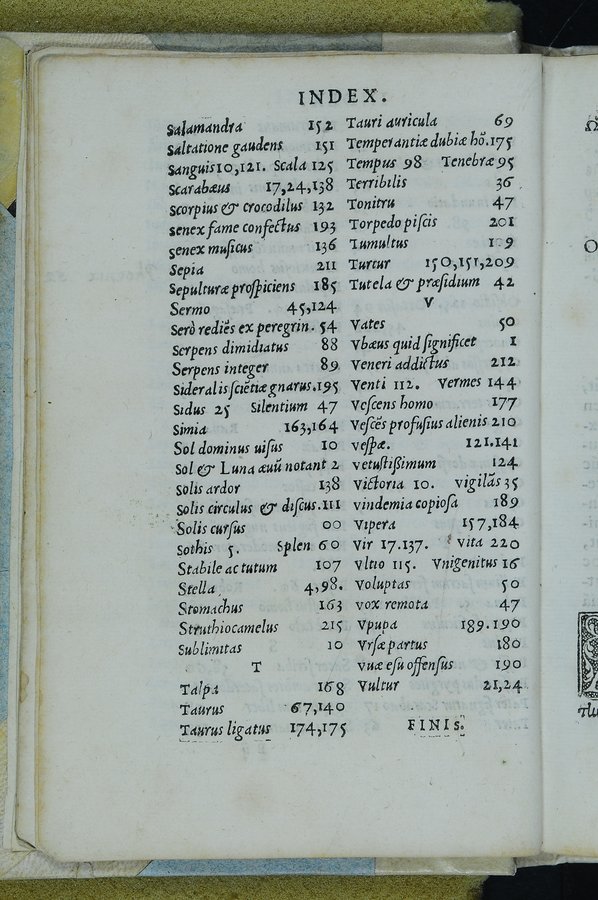 INDEX.
Salamandra 152
Saltatione gaudens 151
Sanguis 10,121. Scala 125
Scarabæus 17,24,138
Scorpius & crocodilus 132
Senex fame confectus 193
Senex musicus 136
Sepia 211
Sepulturæ prospiciens 185
Sermo 45,124
Serò rediẽs ex peregrin. 54
Serpens dimidiatus 88
Serpens integer 89
Sideralis sciẽtiæ gnarus. 195
Sidus 25 Silentium 47
Simia 163,164
Sol dominus uisus 10
Sol & Luna æuũ notant 2
Solis ardor 138
Solis circulus & discus. 111
Solis cursus 00
Sothis 5. Splen 60
Stabile ac tutum 107
Stella 4,98.
Stomachus 163
Struthiocamelus 215
Sublimitas 10
T
Talpa 168
Taurus 67,140
Taurus ligatus 174,175
Tauri auricula 69
Temperantiæ dubiæ hõ. 175
Tempus 98 Tenebræ 95
Terribilis 36
Tonitru 47
Torpedo piscis 201
Tumultus 109
Turtur 150,151,209
Tutela & præsidium 42
V
Vates 50
Vbæus quid significet 1
Veneri addictus 212
Venti 112. Vermes 144
Vescens homo 177
Vescẽs profusius alienis 210
Vespæ. 121.141
Vetustissimum 124
Victoria 10. Vigilãs 35
Vindemia copiosa 189
Vipera 157,184
Vir 17.137. Vita 220
Vltio 115. Vnigenitus 16
Voluptas 50
Vox remota 47
Vpupa 189.190
Vrsæ partus 180
Vuæ esu offensus 190
Vultur 21,24
FINIS.